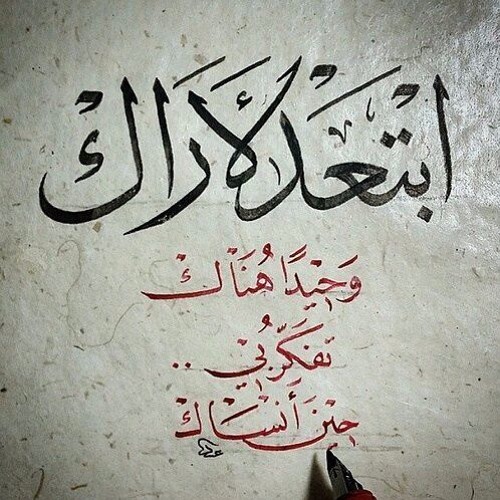 ابْتَعَدْ لأَرَاكْ
وَحِيْدًا هُنَاكْ
تفَكِّرُ بُي ..
حِيْنَ أَنْسَاكْ